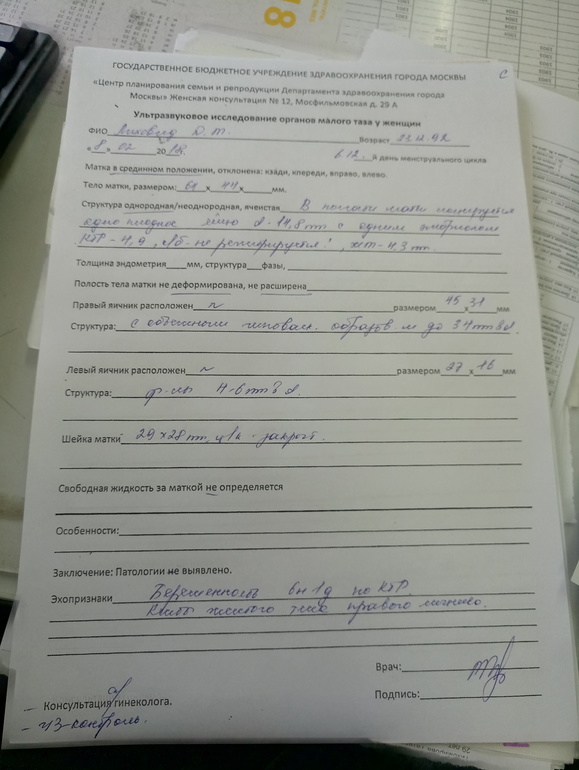 ГОСУДАРСТВЕННОЕ БЮДЖЕТНОЕ УЧРЕЖДЕНИЕ ЗДРАВООХРАНЕНИЯ ГОРОДА МОСКВЫ
«Центр планирования семьи и репродукции Департамента здравоохранения города
Москвы» Женская консультация № 12, Мосфильмовская д. 29 А
Ультразвуковое исследование органов малого таза у женщин
ФИО Д. Возраст 22.12.92
«8» 02 2018. 6 12. й день менструального цикла
Матка в срединном положении, отклонена: кзади, кпереди, вправо, влево.
Тело матки, размером: 61 х 44 х мм.
Структура однородная/неоднородная, ячеистая В полости матки
одно плодное яйцо d-14,8mm с одним эмбрионом
КТР-4,9, с/б-не регистрируется!, жт-4,3 mm.
Толщина эндометрия мм, структура фазы,
Полость тела матки не деформирована, не расширена
Правый яичник расположен размером 45 х 31 мм
Структура: с гипоэхог. образов м до 34mm в d.
Левый яичник расположен размером 27 х 16 мм
Структура: ф-лы 4-6mm в d.
Шейка матки 29х28mm, ц/к - закрыт.
Свободная жидкость за маткой не определяется
Особенности:
Заключение: Патологии не выявлено.
Эхопризнаки Беременность 6н 1д по КТР.
Кисты желтого тела правого яичника.
Врач:
Консультация гинеколога.
Подпись:
- УЗ-контроль.